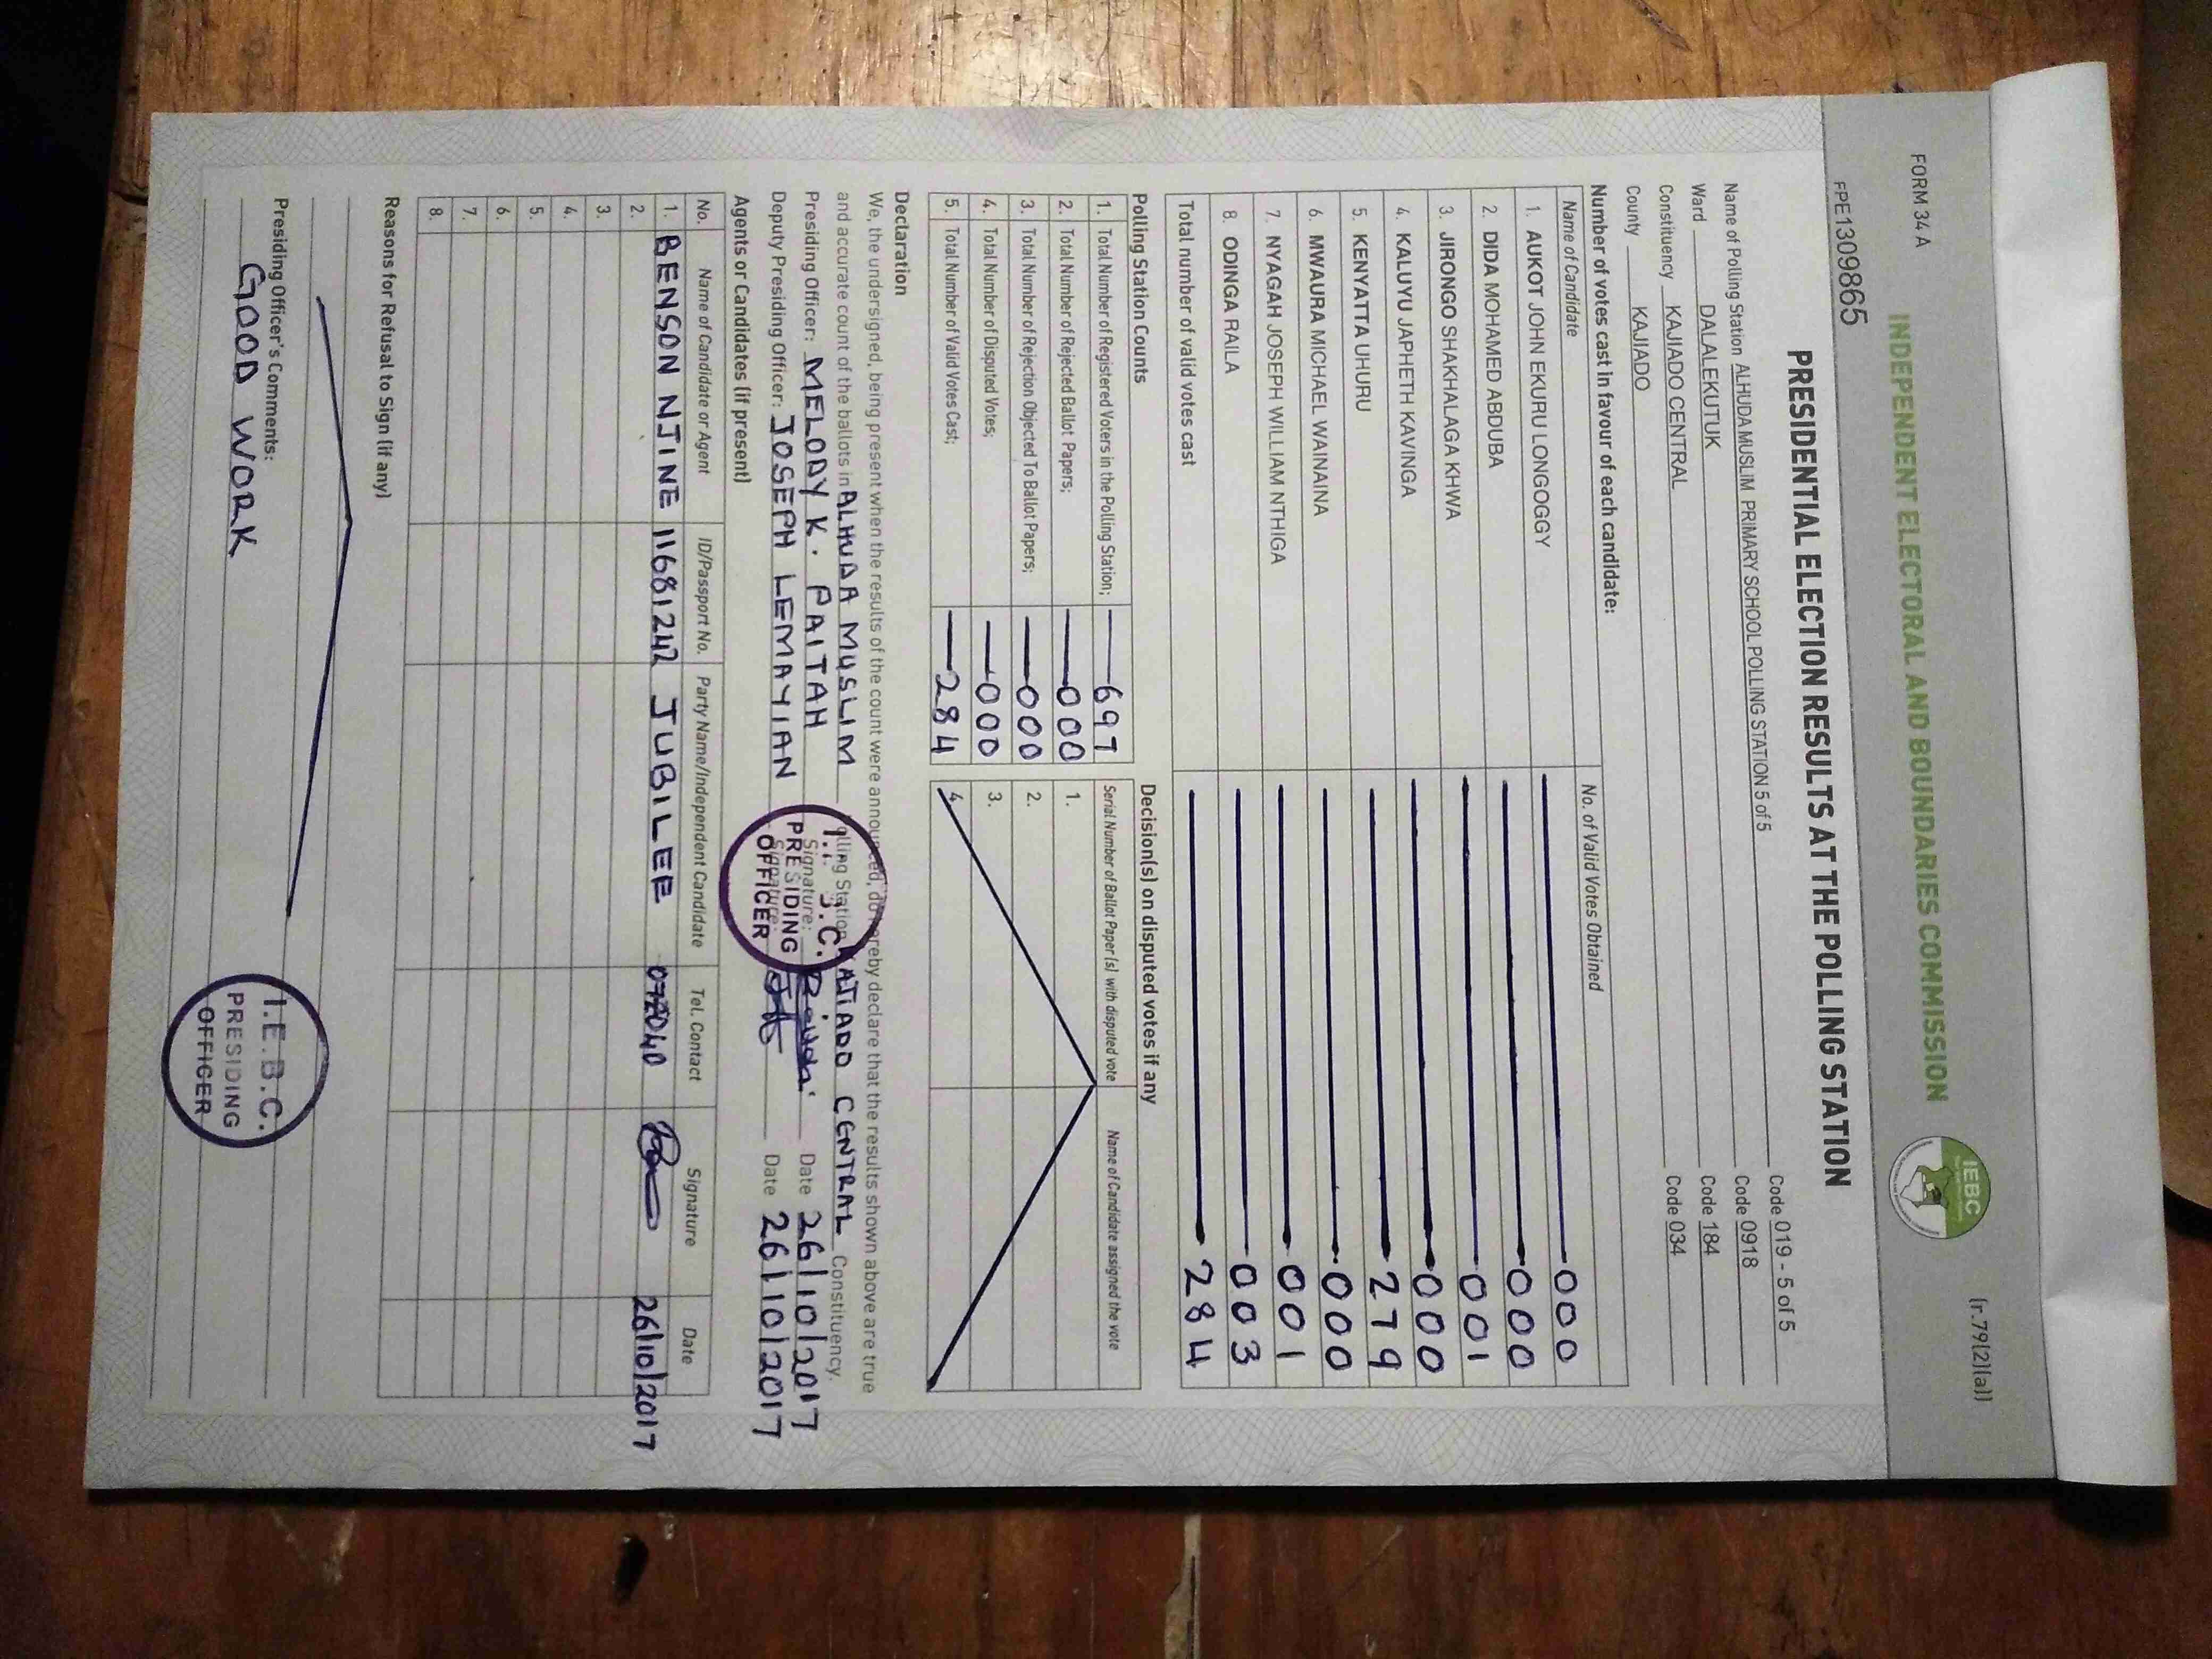 FORM 34 A
(r.79(2)(a))
INDEPENDENT ELECTORAL AND BOUNDARIES COMMISSION
IEBC
FPE1309865
PRESIDENTIAL ELECTION RESULTS AT THE POLLING STATION
Name of Polling Station ALHUDA MUSLIM PRIMARY SCHOOL POLLING STATION 5 of 5 Code 019 - 5 of 5
Ward DALALEKUTUK Code 0918
Constituency KAJIADO CENTRAL Code 184
County KAJIADO Code 034
Number of votes cast in favour of each candidate:
Name of Candidate No. of Valid Votes Obtained
1. AUKOT JOHN EKURU LONGOGGY 000
2. DIDA MOHAMED ABDUBA 000
3. JIRONGO SHAKHALAGA KHWA 001
4. KALUYU JAPHETH KAVINGA 000
5. KENYATTA UHURU 279
6. MWAURA MICHAEL WAINAINA 000
7. NYAGAH JOSEPH WILLIAM NTHIGA 001
8. ODINGA RAILA 003
Total number of valid votes cast 284
Polling Station Counts
1. Total Number of Registered Voters in the Polling Station; 697
2. Total Number of Rejected Ballot Papers; 000
3. Total Number of Rejection Objected To Ballot Papers; 000
4. Total Number of Disputed Votes; 000
5. Total Number of Valid Votes Cast; 284
Decision(s) on disputed votes if any
Serial Number of Ballot Paper(s) with disputed vote Name of Candidate assigned the vote
1.
2.
3.
4.
Declaration
We, the undersigned, being present when the results of the count were announced, do hereby declare that the results shown above are true
and accurate count of the ballots in ALHUDA MUSLIM Polling Station KAJIADO CENTRAL Constituency.
Presiding Officer: MELODY K. PAITAH Signature: Date 26/10/2017
Deputy Presiding Officer: JOSEPH LEMAYIAN Signature: Date 26/10/2017
PRESIDING
OFFICER
Agents or Candidates (if present)
No. Name of Candidate or Agent ID/Passport No. Party Name/Independent Candidate Tel. Contact Signature Date
1. BENSON NJINE 11681242 JUBILEE 072040 26/10/2017
2.
3.
4.
5.
6.
7.
8.
Reasons for Refusal to Sign (if any)
Presiding Officer's Comments:
GOOD WORK
I.E.B.C.
PRESIDING
OFFICER